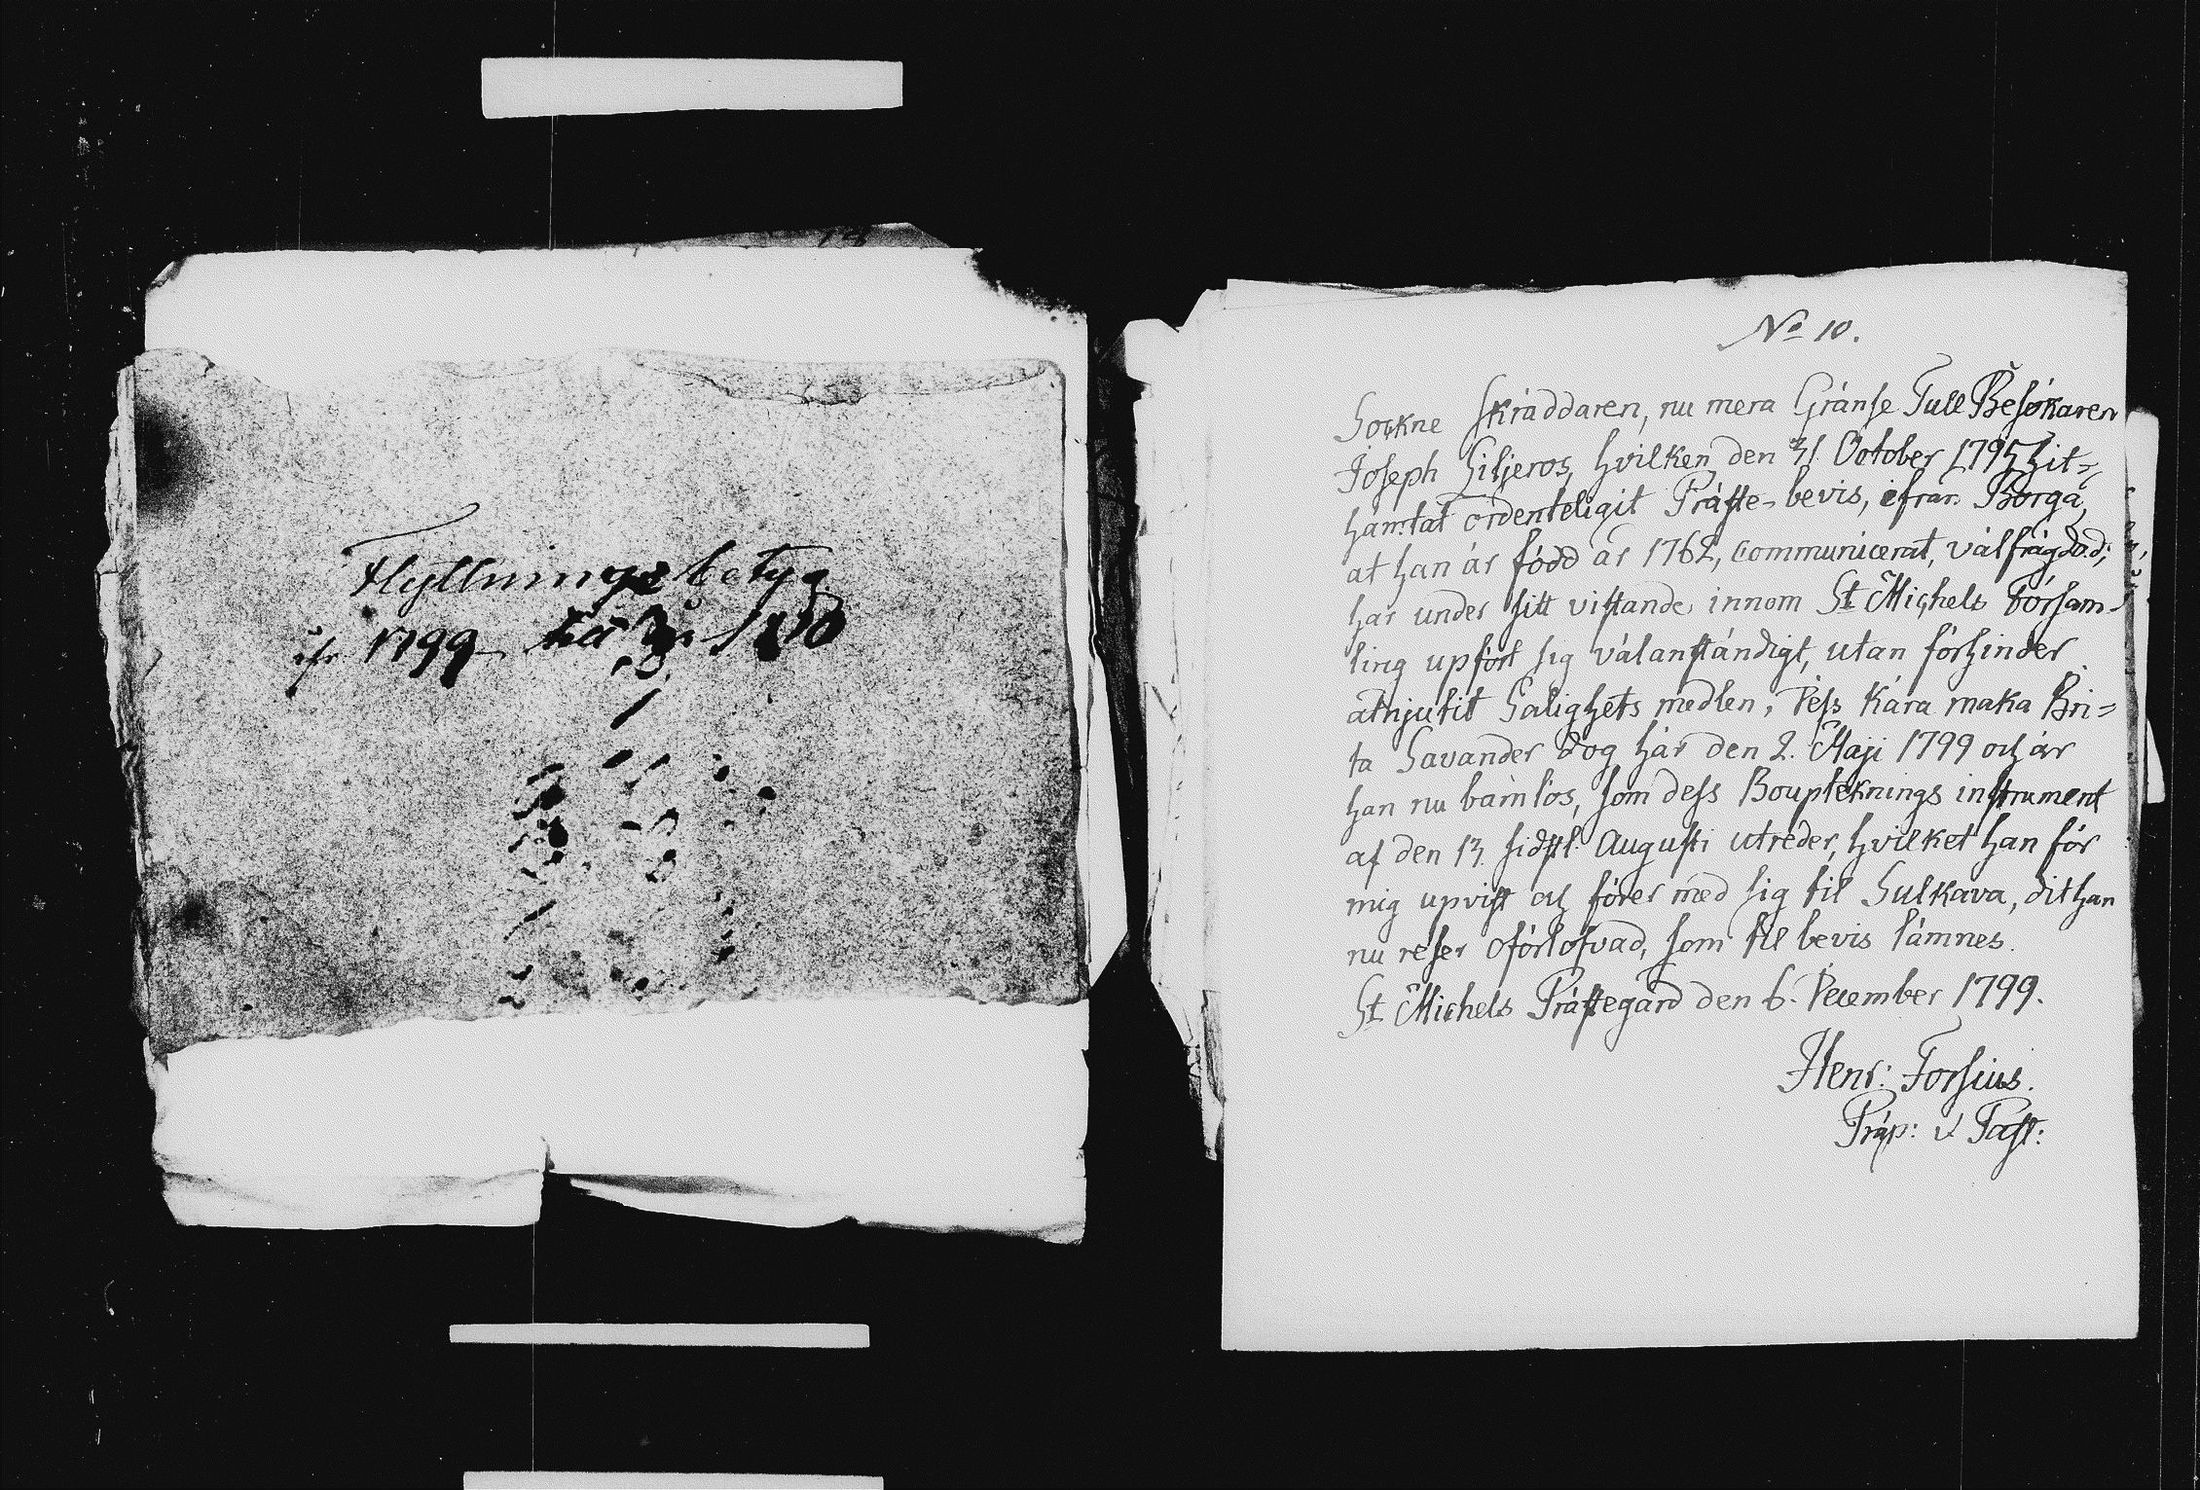 Flyttnings betyg
ifr 1799 till 1810
No 10.
Sockne Skräddaren, nu mera Gränse Tull Besökaren
Joseph Siljeros, hvilken den 31 October 1795 hit=
hämtat ordenteligit Präste-bevis, ifrån Borgå,
at han är född år 1762, communicerat, välfrägdad;
har under sitt vistande innom St Michels Församling=
ling upfört sig välanständigt, utan förhinder
åtnjutit Salighets medlen, Dess kära maka Bri=
ta Savander dog här den 2. Maji 1799 och är
han nu barnlös, som dess Boupteknings instrument
af den 13. sidstl. Augusti utreder, hvilket han för
mig upvist och förer med sig til Sulkava, dit han
nu reser oförlofvad, som til bevis lämnes.
St Michels Prästegård den 6. December 1799.
Henr: Forsius.
Präp: & Past: